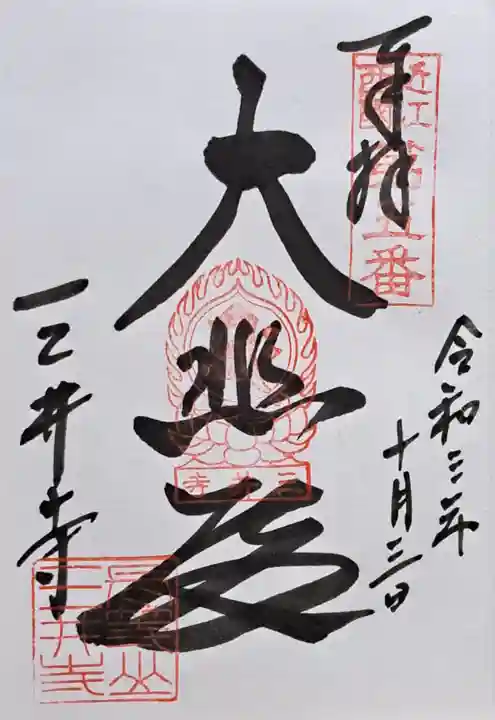 奉拝
近江
西国
第五番
令和三年
十月三日
大悲殿
三井寺
三井寺
長等山
三井寺